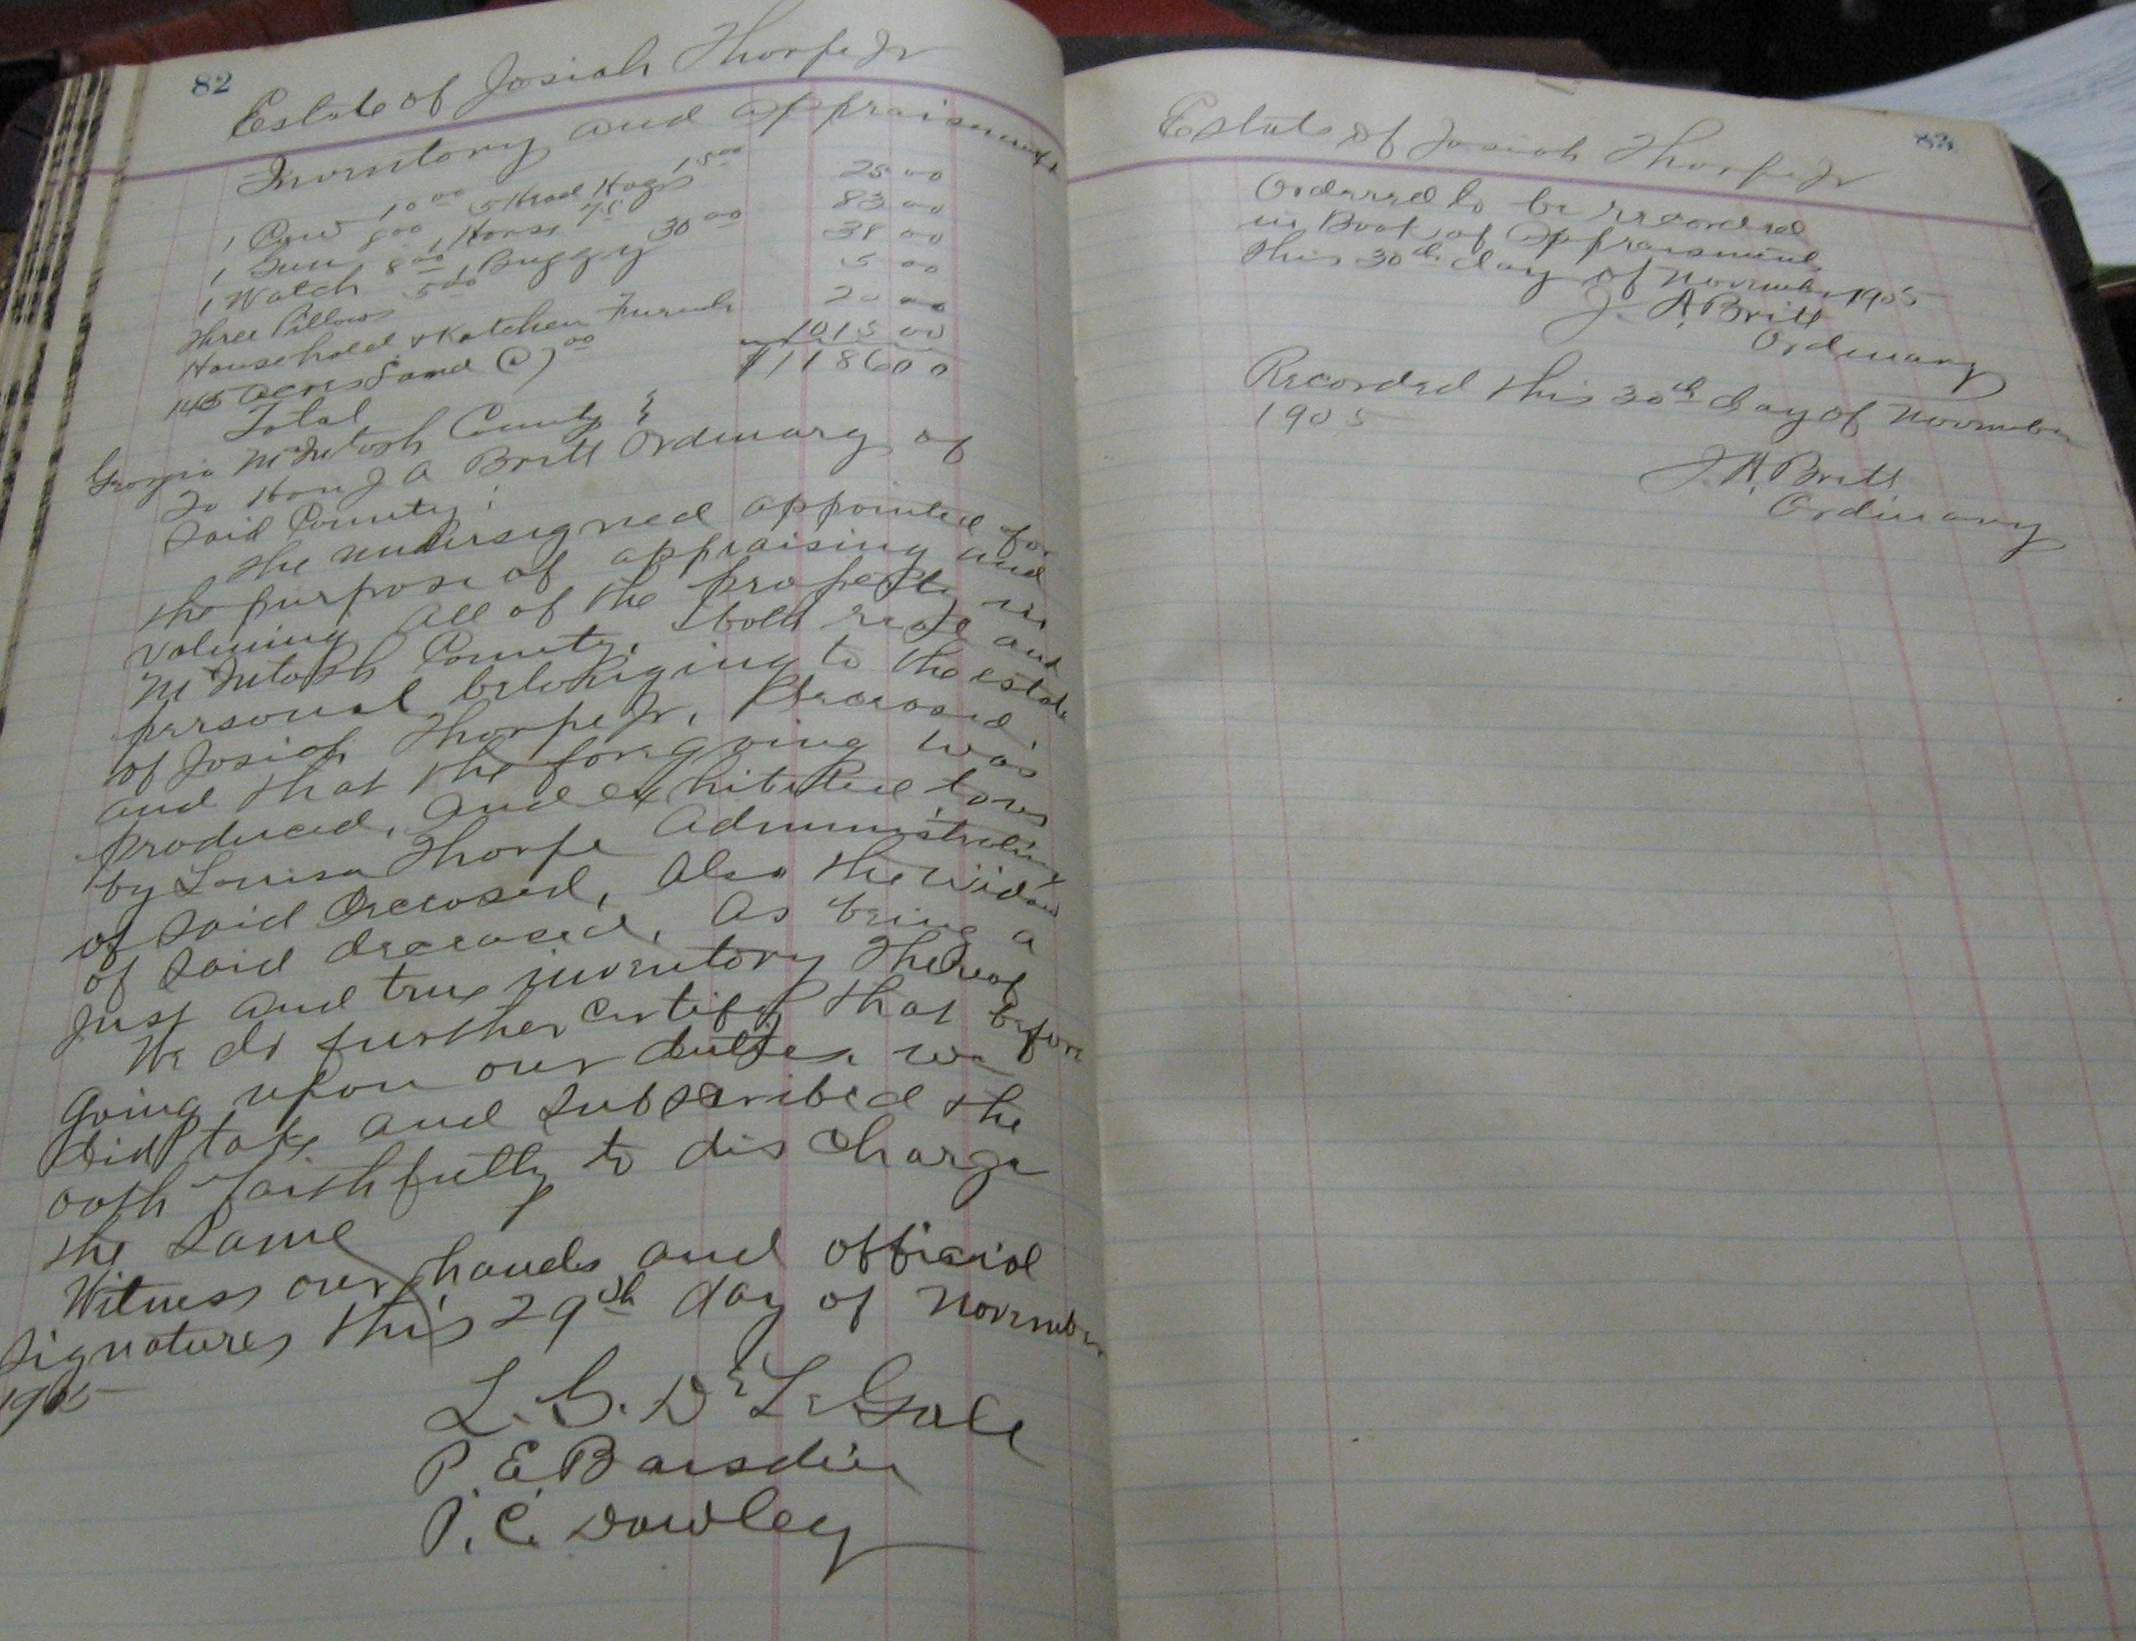 82
Estate of Josiah Thorpe Jr
Inventory and appraisment
1 Cow 10 00 5 Head Hogs 15 00 25 00
1 Gun 8 00 1 Horse 75 83 00
1 Watch 8 00 1 Buggy 30 00 38 00
Three Pillows 5 00 5 00
Household & Kitchen Furnish 20 00
145 acres Land @ 7 00 1015 00
Total $1186 00
Georgia McIntosh County
To Hon J A Britt Ordinary of
Said County;
The undersigned appointed for
the purpose of appraising and
valuing all of the property in
McIntosh County, both real and
personal belonging to the estate
of Josiah Thorpe Jr, Deceased
and that the forgoing was
produced, and exhibited to us
by Louisa Thorpe Administratrix
of said Deceased, also the widow
of said deceased, as being a
just and true inventory thereof
We do further certify that before
going upon our duties, we
did take and subscribed the
oath faithfully to discharge
the same
Witness our hands and official
signatures this 29th day of November
1905
L. S. De Le Gale
P. E. Baisden
P. C. Dowley
83
Estate of Josiah Thorpe Jr
Ordered to be recorded
in Book of appraisment
this 30th day of November 1905
J. A. Britt
Ordinary
Recorded this 30th day of November
1905
J. A. Britt
Ordinary